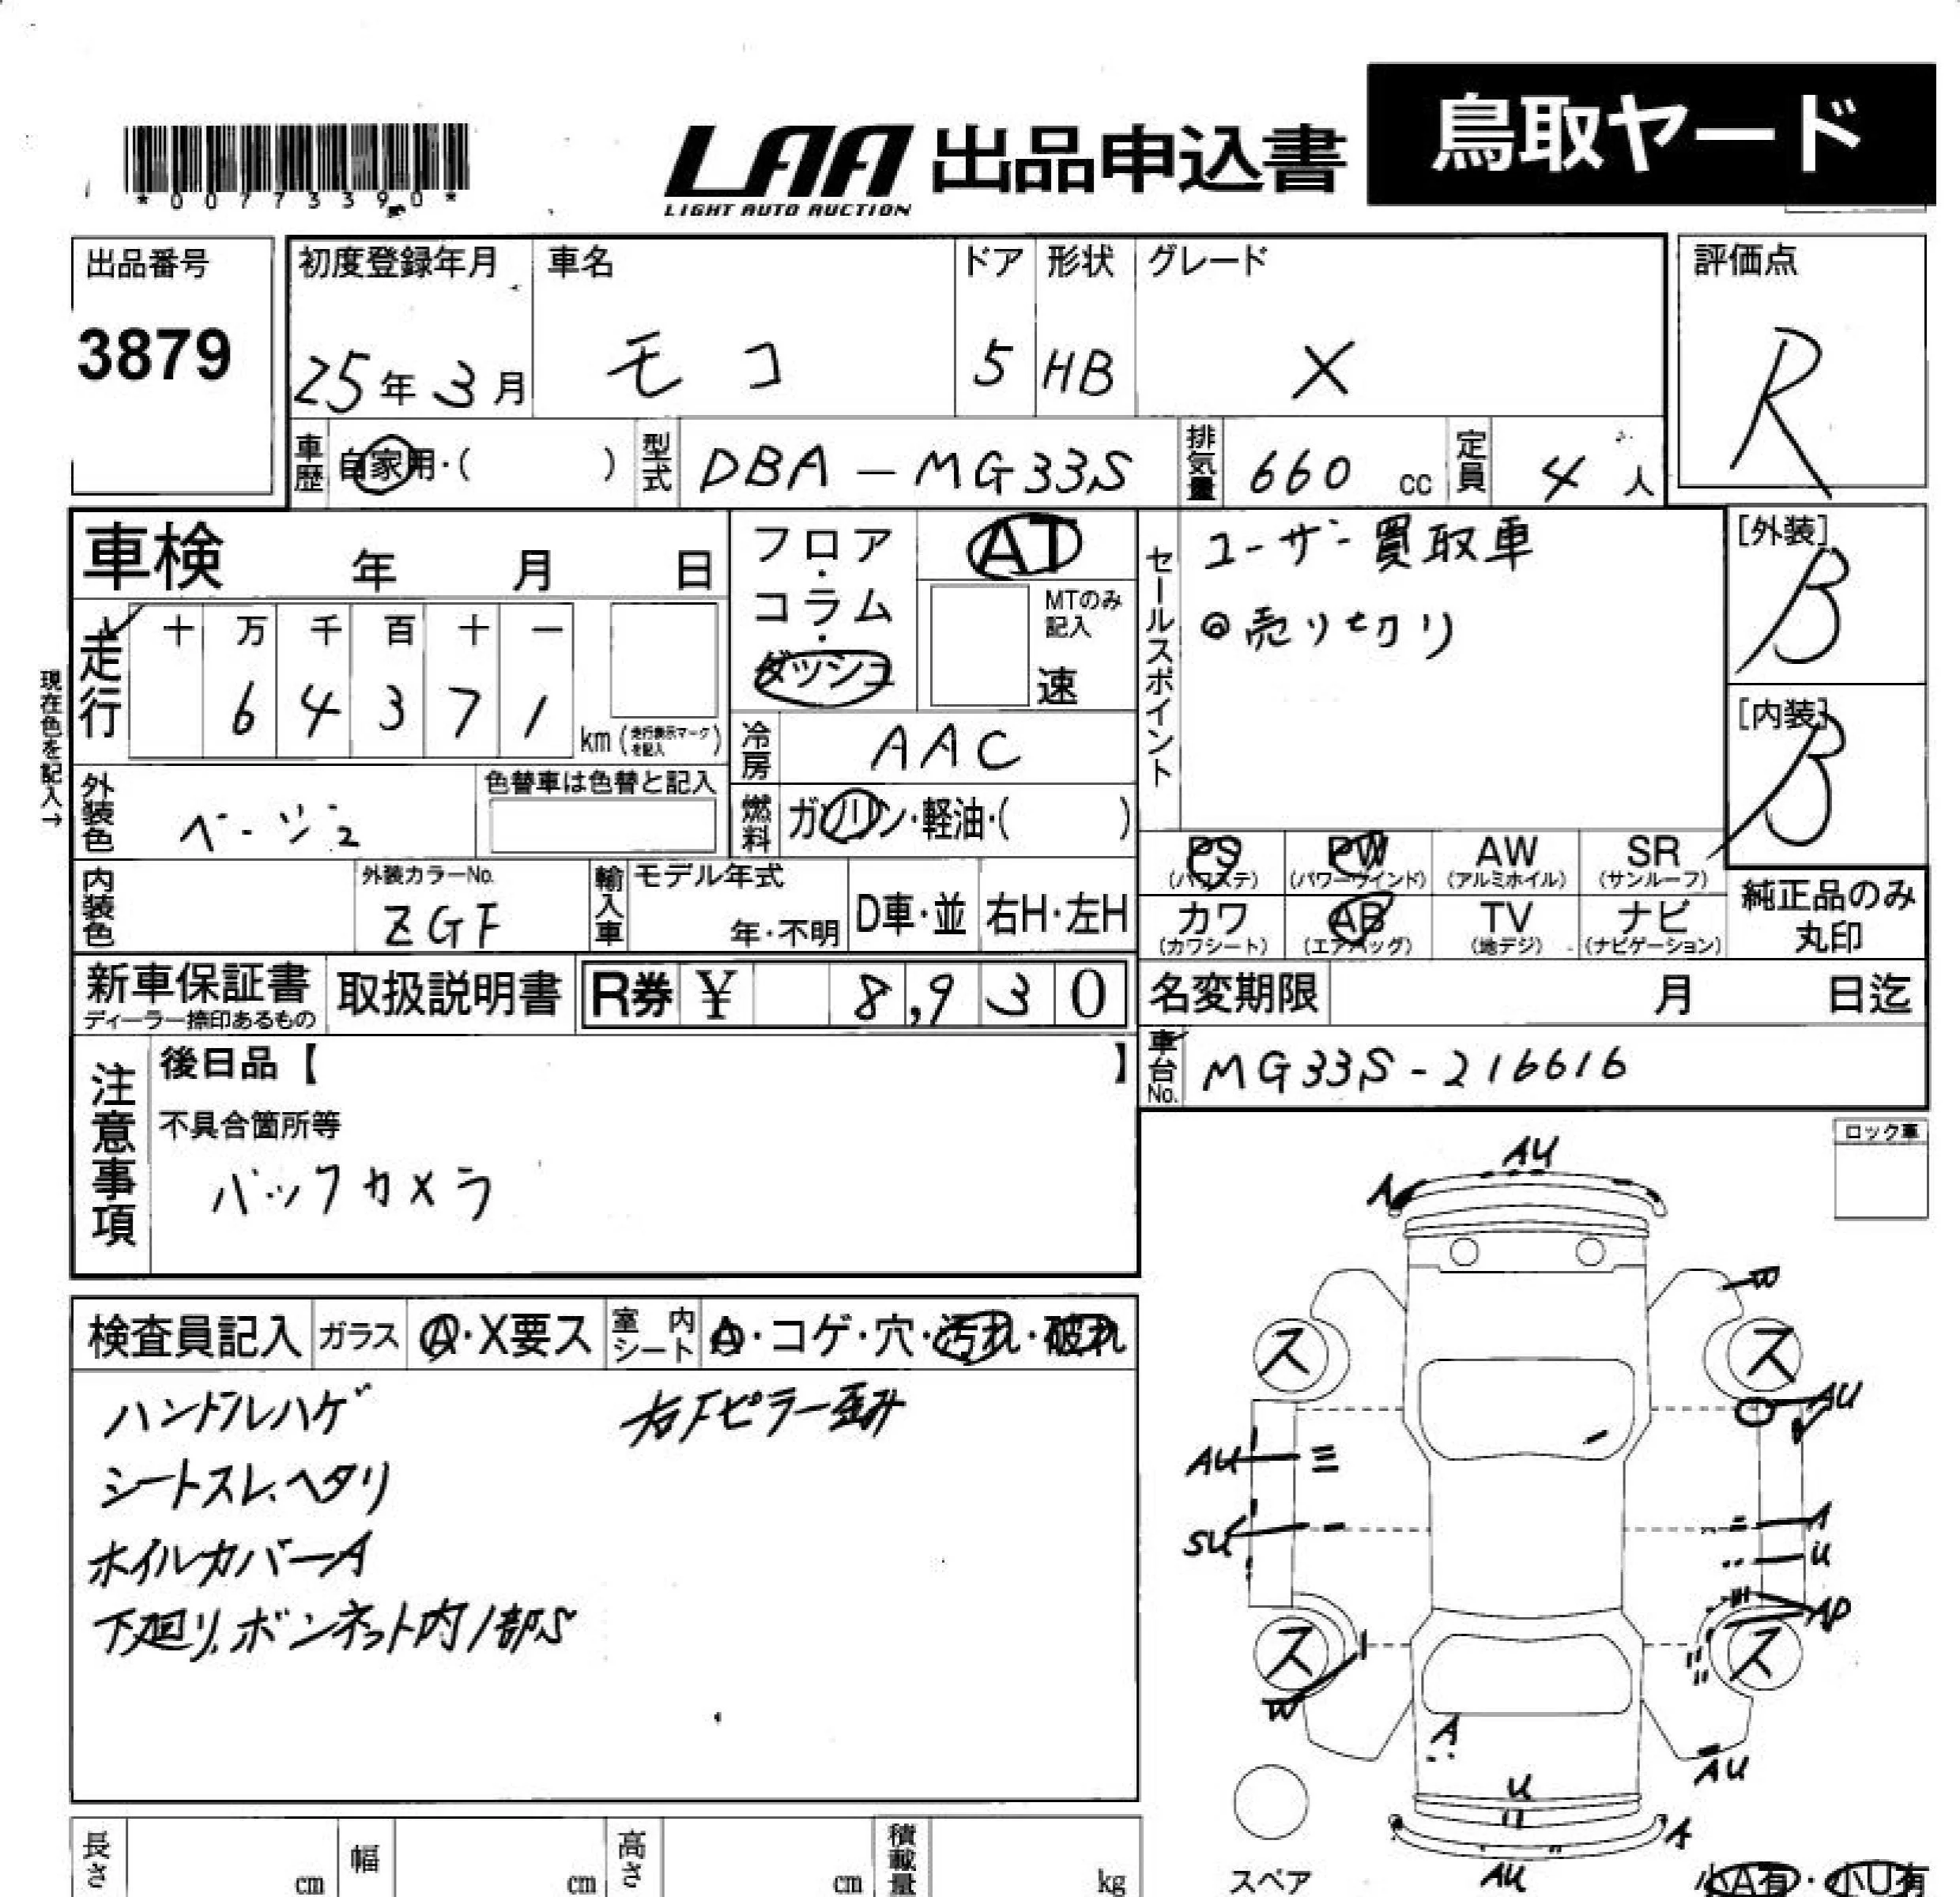 鳥取ヤード
*00773390*
LAA 出品申込書
LIGHT AUTO AUCTION
出品番号
3879
初度登録年月
25年3月
車名
モコ
ドア
5
形状
HB
グレード
X
評価点
R
車歴 自家用・( )
型式 DBA-MG33S
排気量 660 cc
定員 4人
車検 年 月 日
走行 十 万 千 百 十 一
6 4 3 7 1 km (走行表示マークを記入)
現在色を記入→
フロア・コラム・ダッシュ
AT
MTのみ記入
速
冷房 AAC
燃料 ガソリン・軽油・( )
セールスポイント
ユーザー買取車
◎売り切り
[外装]
B
[内装]
B
外装色 ベージュ
色替車は色替と記入
内装色
外装カラーNo.
ZGF
輸入車
モデル年式
年・不明
D車・並
右H・左H
PS (パワステ)
PW (パワーウインド)
AW (アルミホイル)
SR (サンルーフ)
カワ (カワシート)
AB (エアバッグ)
TV (地デジ)
ナビ (ナビゲーション)
純正品のみ丸印
新車保証書
ディーラー捺印あるもの
取扱説明書
R券 ¥ 8,930
名変期限 月 日迄
車台No. MG33S-216616
注意事項
後日品【 】
不具合箇所等
バックカメラ
ロック車
検査員記入
ガラス A・X要ス
室内シート A・コゲ・穴・汚れ・破れ
ハンドルハゲ
右Fピラー歪み
シートスレ、ヘタリ
ホイルカバーA
下廻り、ボンネット内1部S
AU
A
W
ス
ス
AU
AU
SU
A
U
AP
ス
ス
W
A
AU
U
A
AU
スペア
小A有・小U有
長さ cm
幅 cm
高さ cm
積載量 kg